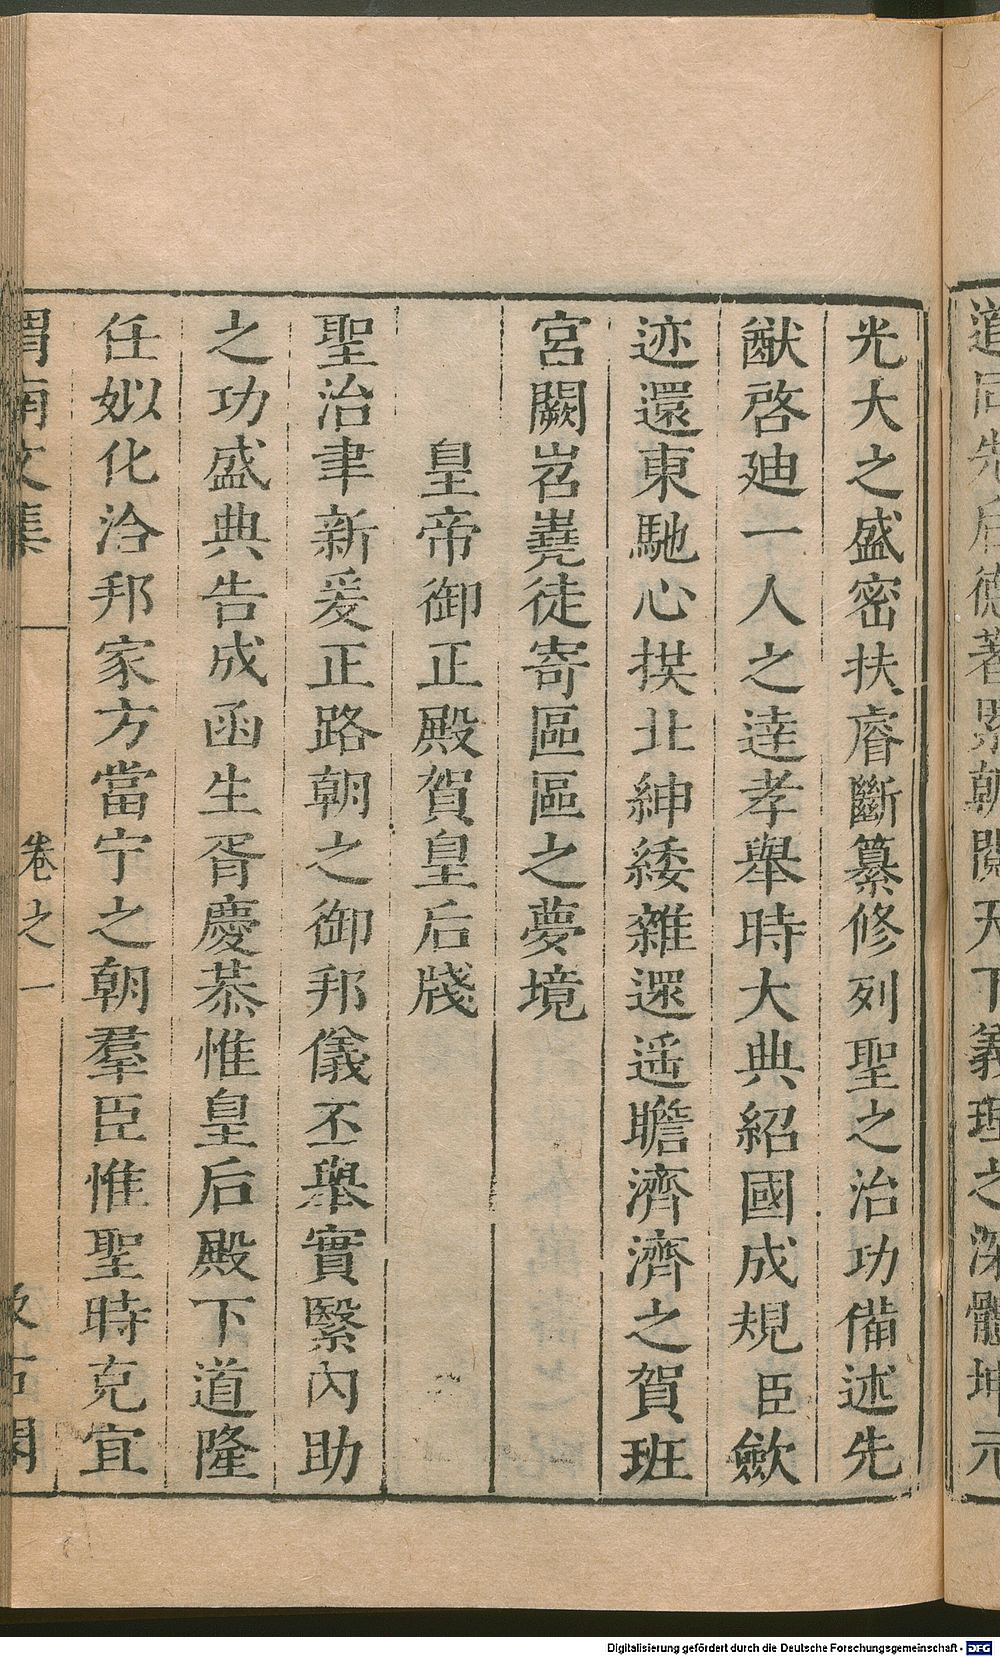 道同先后德著累朝閱天下義理之深體坤元
光大之盛密扶睿斷纂修列聖之治功備述先
猷啓廸一人之達孝舉時大典紹國成規臣歛
迹還東馳心拱北紳緌雜遝遥瞻濟濟之賀班
宮闕岧嶤徒寄區區之夢境
皇帝御正殿賀皇后牋
聖治聿新爰正路朝之御邦儀丕舉實繄內助
之功盛典告成函生胥慶恭惟皇后殿下道隆
任姒化洽邦家方當宁之朝羣臣惟聖時克宜
渭南文集
卷之一
汲古閣
Digitalisierung gefördert durch die Deutsche Forschungsgemeinschaft - DFG